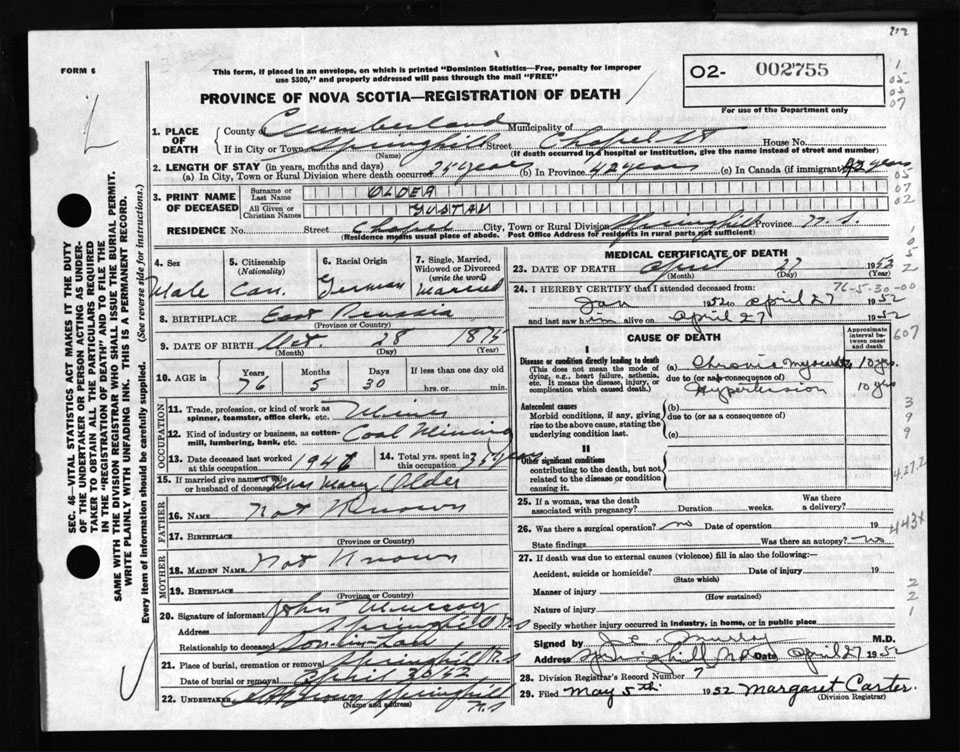 FORM 6
This form, if placed in an envelope, on which is printed "Dominion Statistics—Free, penalty for improper
use $300," and properly addressed will pass through the mail "FREE"
O2- 002755
For use of the Department only
PROVINCE OF NOVA SCOTIA—REGISTRATION OF DEATH
1. PLACE OF DEATH
County of Cumberland Municipality of
If in City or Town Springhill Street Chapel St House No.
(Name) (If death occurred in a hospital or institution, give the name instead of street and number)
2. LENGTH OF STAY (in years, months and days)
(a) In City, Town or Rural Division where death occurred 25 years (b) In Province 42 years (c) In Canada (if immigrant) 42 years
3. PRINT NAME OF DECEASED
Surname or Last Name OLDER
All Given or Christian Names GUSTAV
RESIDENCE No. Street Chapel City, Town or Rural Division Springhill Province N.S.
(Residence means usual place of abode. Post Office Address for residents in rural parts not sufficient)
SEC. 46—VITAL STATISTICS ACT MAKES IT THE DUTY
OF THE UNDERTAKER OR PERSON ACTING AS UNDER-
TAKER TO OBTAIN ALL THE PARTICULARS REQUIRED
IN THE "REGISTRATION OF DEATH" AND TO FILE THE
SAME WITH THE DIVISION REGISTRAR WHO SHALL ISSUE THE BURIAL PERMIT.
WRITE PLAINLY WITH UNFADING INK. THIS IS A PERMANENT RECORD.
Every item of information should be carefully supplied. (See reverse side for instructions.)
4. Sex
Male
5. Citizenship
(Nationality)
Can.
6. Racial Origin
German
7. Single, Married,
Widowed or Divorced
(write the word)
Married
8. BIRTHPLACE East Prussia
(Province or Country)
9. DATE OF BIRTH Oct. 28 1875
(Month) (Day) (Year)
10. AGE in Years Months Days If less than one day old
76 5 30 hrs. or min.
OCCUPATION
11. Trade, profession, or kind of work as
spinner, teamster, office clerk, etc. Miner
12. Kind of industry or business, as cotton-
mill, lumbering, bank, etc. Coal Mining
13. Date deceased last worked
at this occupation 1946
14. Total yrs. spent in
this occupation 35 years
15. If married give name of wife
or husband of deceased Mrs Mary Older
FATHER
16. NAME Not Known
17. BIRTHPLACE
(Province or Country)
MOTHER
18. MAIDEN NAME Not Known
19. BIRTHPLACE
(Province or Country)
20. Signature of informant John
Address Springhill N.S
Relationship to deceased Son-in-Law
21. Place of burial, cremation or removal Springhill N.S
Date of burial or removal April 30/52
22. UNDERTAKER Brown Springhill
(Name and address) N.S
MEDICAL CERTIFICATE OF DEATH
23. DATE OF DEATH April 27 1952
(Month) (Day) (Year)
76-5-30-00
24. I HEREBY CERTIFY that I attended deceased from:
Jan 1952 to April 27 1952
and last saw him alive on April 27 1952
CAUSE OF DEATH
Approximate interval between onset and death
I
Disease or condition directly leading to death
(This does not mean the mode of
dying, e.g., heart failure, asthenia,
etc. It means the disease, injury, or
complication which caused death.)
(a) Chronic 10 yrs
due to (or as consequence of)
Hypertension 10 yrs
Antecedent causes
Morbid conditions, if any, giving
rise to the above cause, stating the
underlying condition last.
(b)
due to (or as a consequence of)
(c)
II
Other significant conditions
contributing to the death, but not
related to the disease or condition
causing it.
25. If a woman, was the death
associated with pregnancy? Duration weeks. Was there a delivery?
26. Was there a surgical operation? no Date of operation 19
State findings Was there an autopsy? no
27. If death was due to external causes (violence) fill in also the following:—
Accident, suicide or homicide? Date of injury 19
(State which)
Manner of injury
(How sustained)
Nature of injury
Specify whether injury occurred in industry, in home, or in public place
Signed by J.E. Murray M.D.
Address Springhill N.S. Date April 27 1952
28. Division Registrar's Record Number 7
29. Filed May 5th 1952 Margaret Carter.
(Division Registrar)
607
399
443X
221